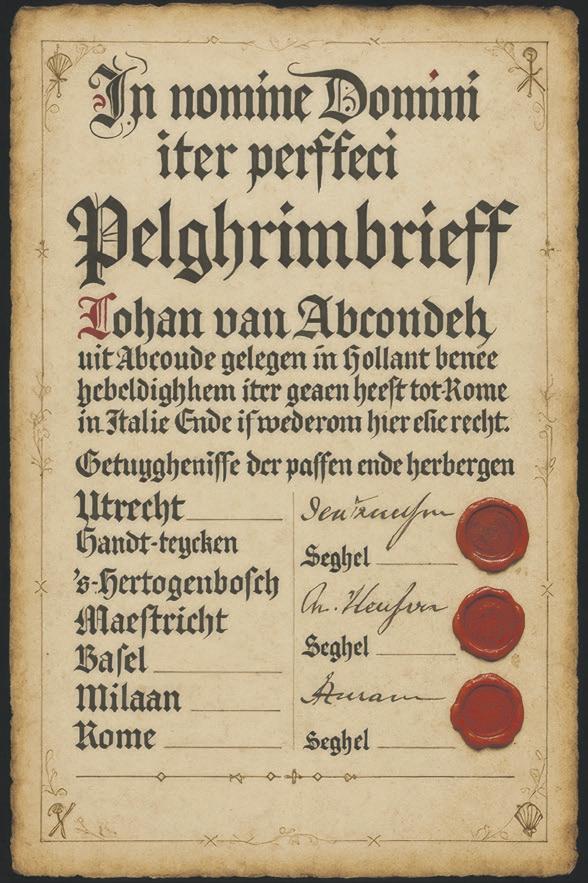 In nomine Domini
iter perffeci
Pelghrimbrieff
Lohan van Abcondeh
uit Abcoude gelegen in Hollant benee
hebeldighhem iter geaen heeft tot Rome
in Italie Ende is wederom hier elic recht.
Getuyghenisse der passen ende herbergen
Utrecht
Handt-teycken
Seghel
's-Hertogenbosch
Maestricht
Seghel
Basel
Milaan
Rome
Seghel